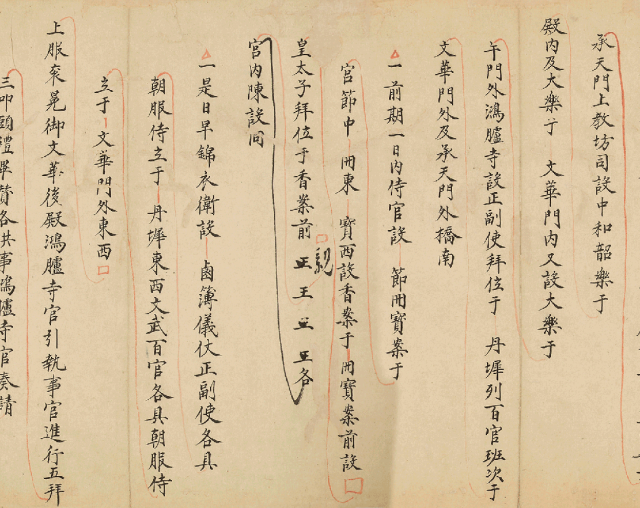 承天門上教坊司設中和韶樂于
殿內及大樂于 文華門內又設大樂于
午門外鴻臚寺設正副使拜位于 丹墀列百官班次于
文華門外及承天門外橋南
一前期一日內侍官設 節冊寶案于
宮節中 冊東 寶西設香案于 冊寶案前設
皇太子拜位于香案前 親王
各
宮內陳設同
一是日早錦衣衛設 鹵簿儀仗正副使各具
朝服侍立于 丹墀東西文武百官各具朝服侍
立于 文華門外東西
上服衮冕御文華後殿鴻臚寺官引執事官進行五拜
三叩頭禮畢贊各共事鴻臚寺官奏請